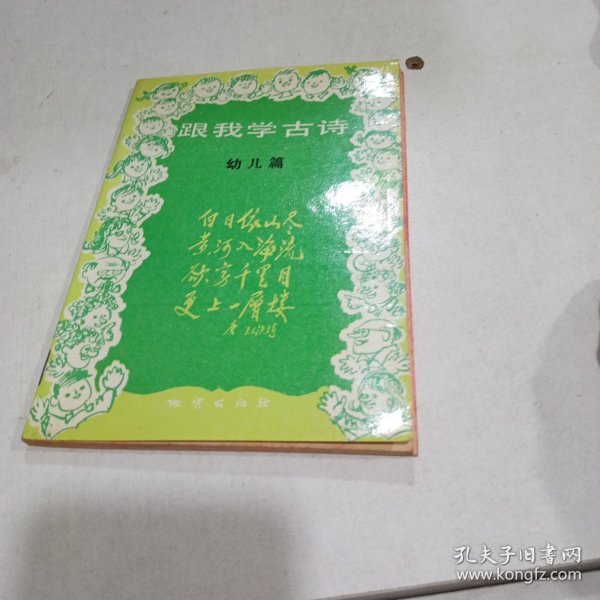 跟我学古诗
幼儿篇
白日依山尽
黄河入海流
欲穷千里目
更上一層楼
地质出版社
孔夫子旧书网
www.kongfz.com